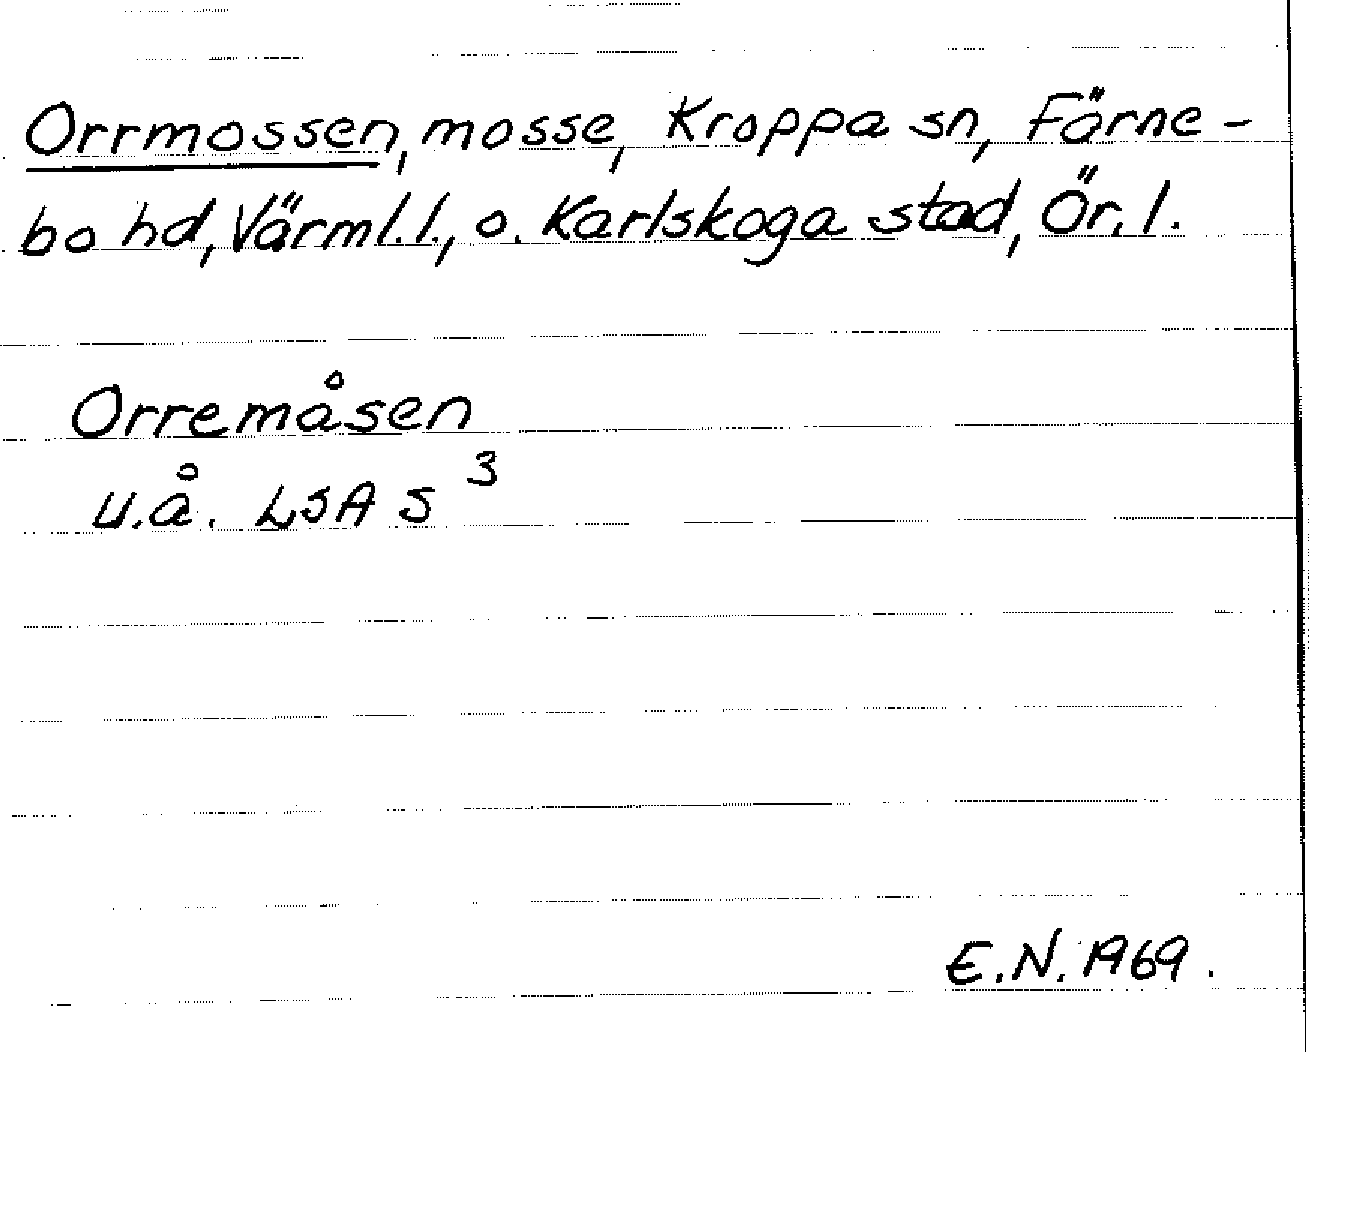 Orrmossen, mosse, Kroppa sn, Färne-
bo hd, Värml.l., o. Karlskoga stad, Ör.l.
Orremåsen
u.å. LSA S 3
E.N. 1969.